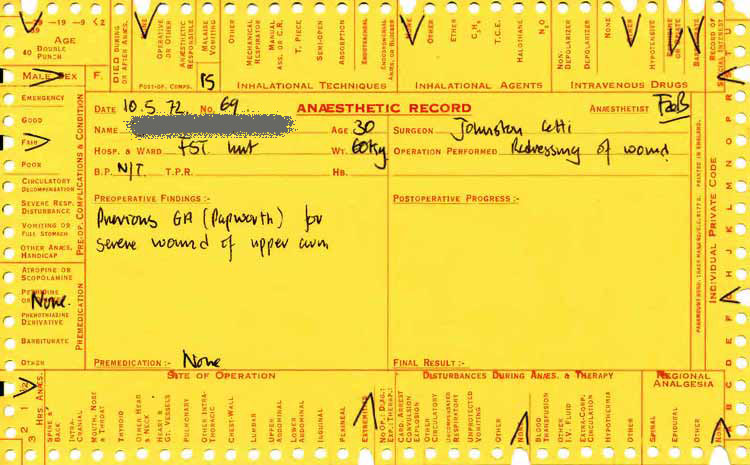 39 -19 -9 <2
AGE
40 DOUBLE PUNCH
MALE SEX F.
DIED DURING OR AFTER ANÆS.
NONE
OPERATIVE OR OTHER
ANÆSTHETIC RESPONSIBLE
MALAISE VOMITING
OTHER
POST-OP. COMPS.
MECHANICAL RESPIRATOR
MANUAL ASS. OR C.R.
T. PIECE
SEMI-OPEN
ABSORPTION
ENDOTRACHEAL
INHALATIONAL TECHNIQUES
NONE
OTHER
ETHER
T.C.E.
HALOTHANE
N₂O
INHALATIONAL AGENTS
NON-DEPOLARIZER
DEPOLARIZER
NONE
OTHER
HYPOTENSIVE
INTRAVENOUS DRUGS
RECORD OF SPECIAL INTEREST
PS
EMERGENCY
GOOD
FAIR
POOR
CIRCULATORY DECOMPENSATION
SEVERE RESP. DISTURBANCE
VOMITING OR FULL STOMACH
OTHER ANÆS. HANDICAP
PRE-OP. COMPLICATIONS & CONDITION
ATROPINE OR SCOPOLAMINE
None
PHENOTHIAZINE DERIVATIVE
BARBITURATE
OTHER
PREMEDICATION
DATE 10.5.72 NO. 69 ANÆSTHETIC RECORD ANÆSTHETIST
NAME AGE 30 SURGEON Johnston Cetti
HOSP. & WARD FST. WT. 60kg OPERATION PERFORMED Redressing of wound
B.P. N/T T.P.R. HB.
PREOPERATIVE FINDINGS :- POSTOPERATIVE PROGRESS :-
Previous GA (Papworth) for
severe wound of upper arm
PREMEDICATION :- None FINAL RESULT :-
PRINTED IN ENGLAND.
INDIVIDUAL PRIVATE CODE
A B C D E F G H I J K L M N O P R S T U
3 2 1 ½
HRS ANÆS.
SITE OF OPERATION
SPINE & BACK
INTRA-CRANIAL
MOUTH, NOSE & THROAT
THYROID
OTHER HEAD & NECK
HEART & GT. VESSELS
PULMONARY
OTHER INTRA-THORACIC
CHEST-WALL
LUMBAR
UPPER ABDOMINAL
LOWER ABDOMINAL
INGUINAL
PERINEAL
EXTREMITIES
NO OP.: DIAG.: EXP.: THERAP.:
DISTURBANCES DURING ANÆS. & THERAPY
CARD. ARREST
CONVULSION
EXPLOSION
OTHER CIRCULATORY
UNCOMPENSATED RESPIRATORY
UNPROTECTED VOMITING
OTHER
NONE
BLOOD TRANSFUSION
OTHER I.V. FLUID
EXTRA-CORP. CIRCULATION
HYPOTHERMIA
OTHER
REGIONAL ANALGESIA
SPINAL
EPIDURAL
OTHER
NONE